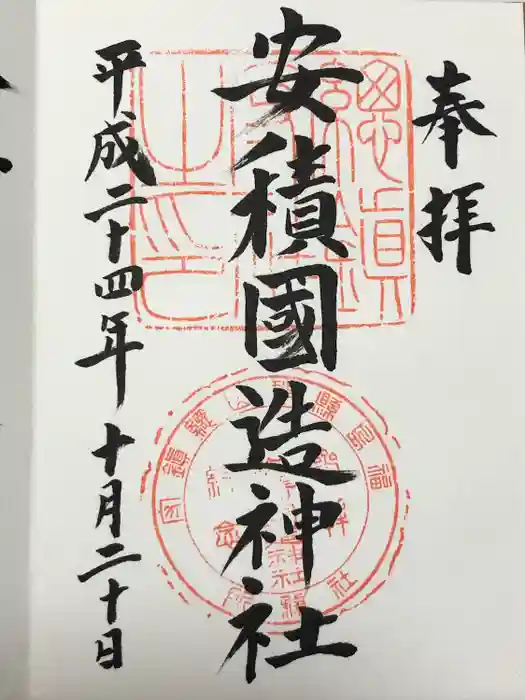 奉拝
安積國造神社
平成二十四年 十月二十日
總鎮